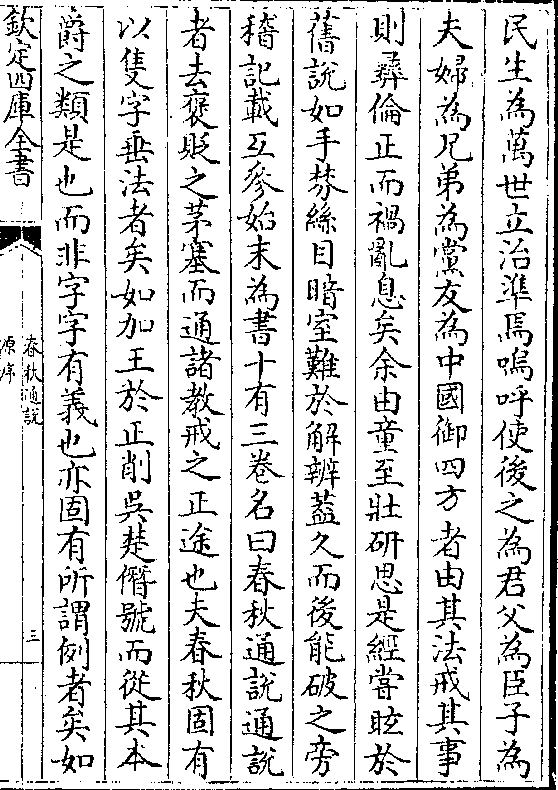 民生為萬世立治準焉嗚呼使後之為君父為臣子為
夫婦為兄弟為黨友為中國御四方者由其法戒其事
則彞倫正而禍亂息矣余由童至壯研思是經嘗眩於
舊說如手棼絲目暗室難於解辨葢久而後能破之旁
稽記載互參始末為書十有三卷名曰春秋通說通說
者去褒貶之茅塞而通諸教戒之正途也夫春秋固有
以隻字垂法者矣如加王於正削吳楚僭號而從其本
爵之類是也而非字字有義也亦固有所謂例者矣如
欽定四庫全書
春秋通說
原序
三